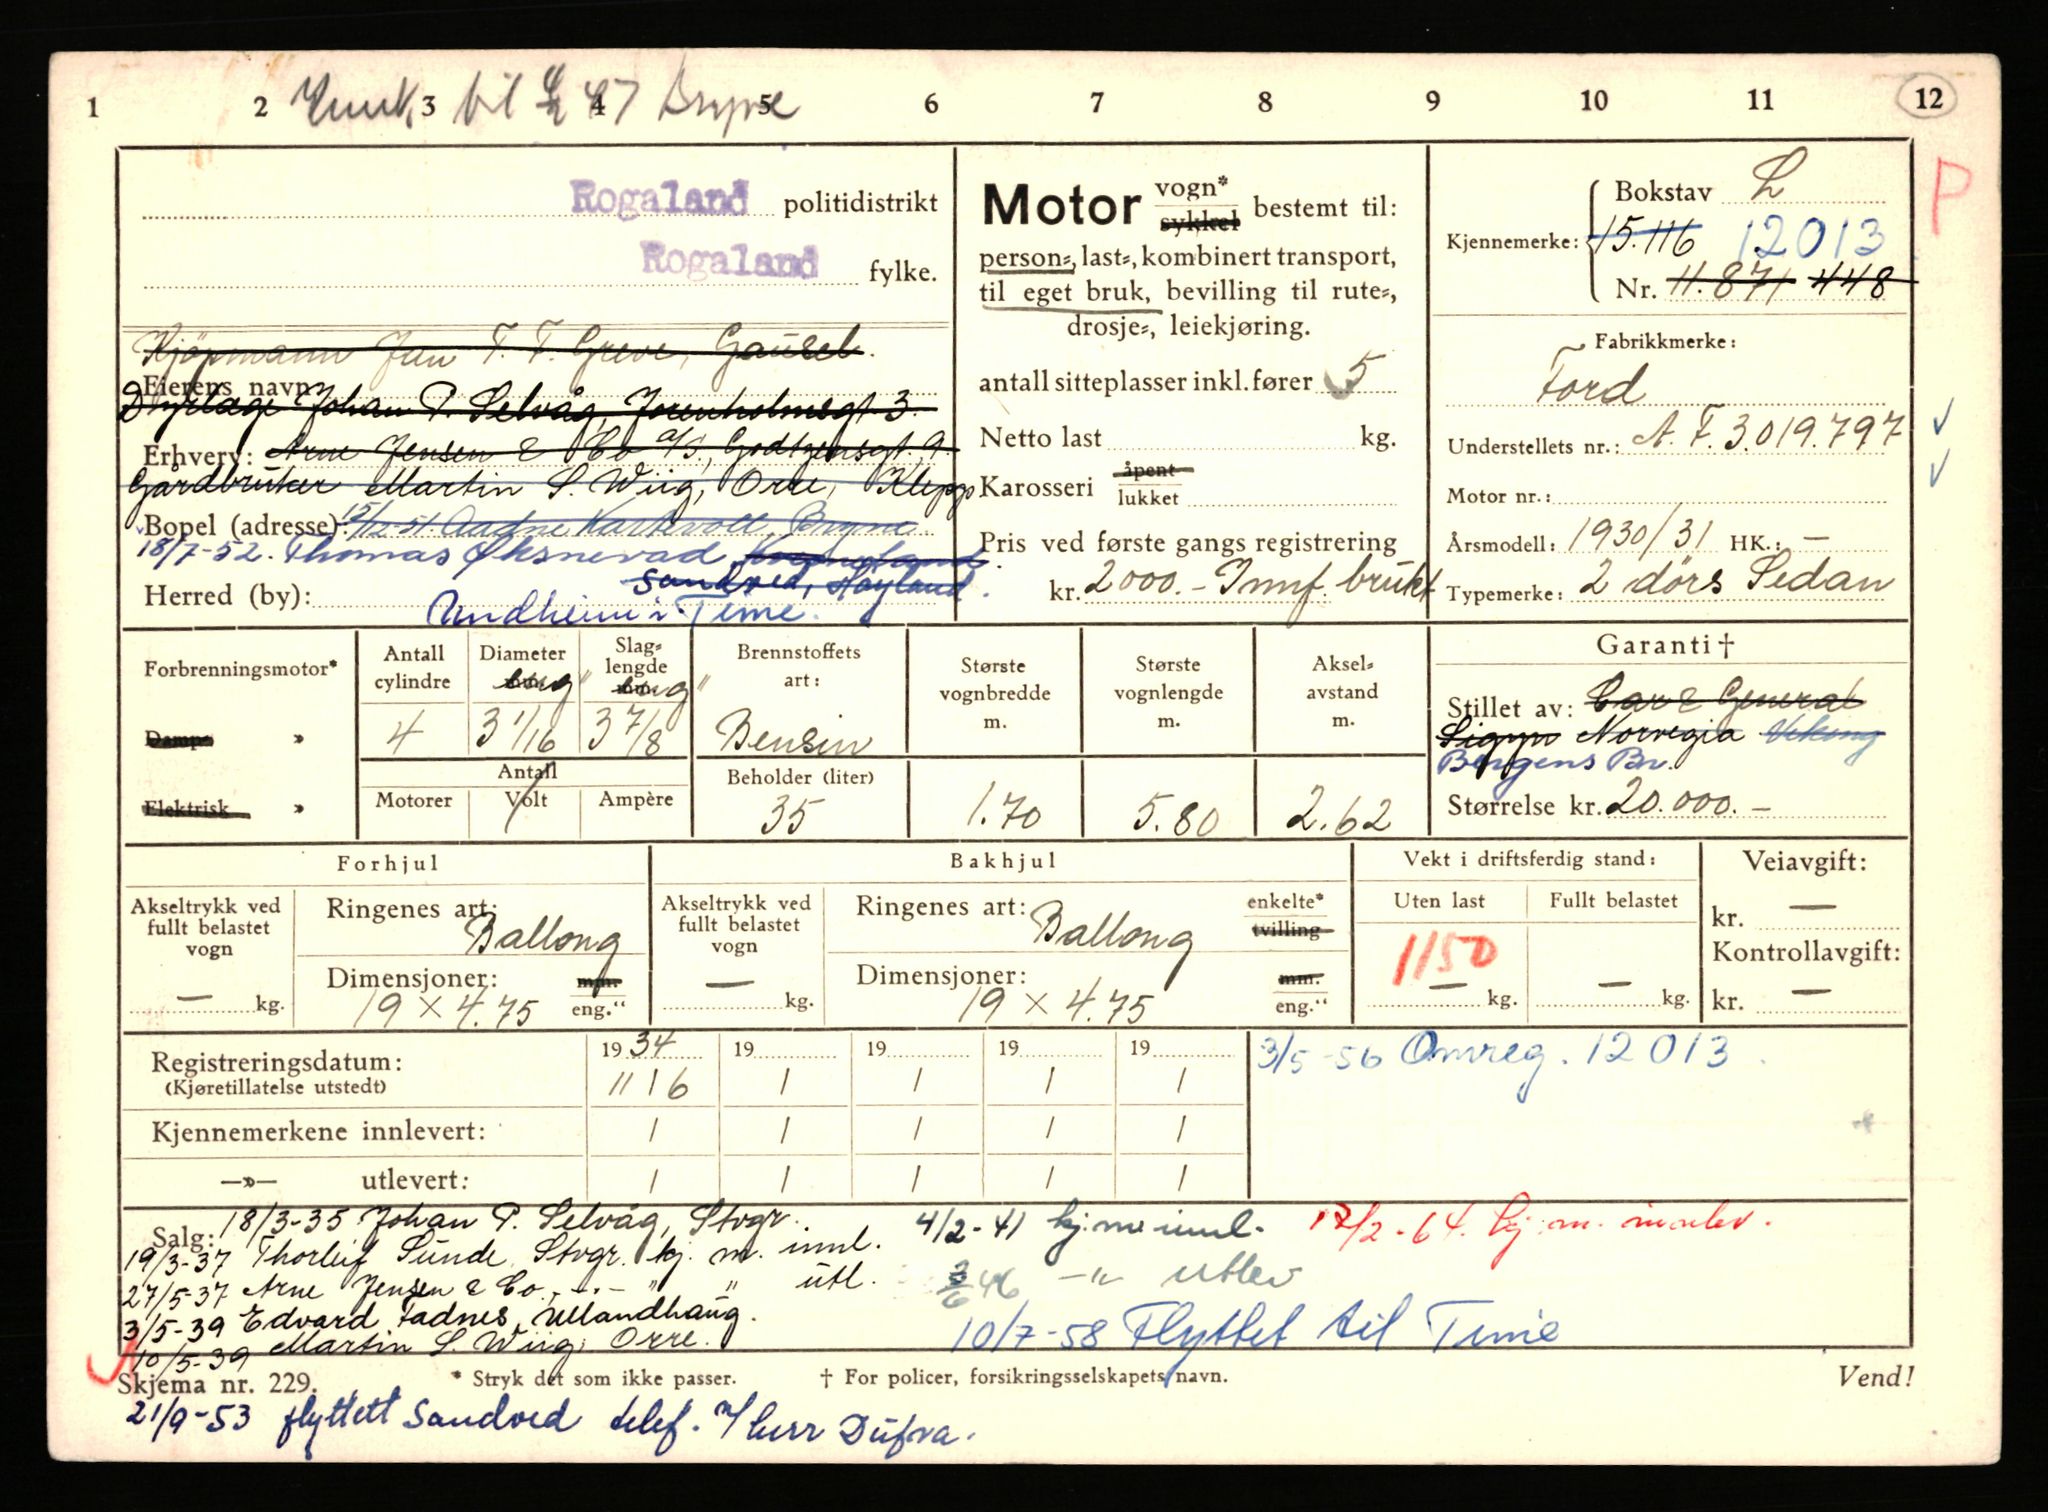 1 2 3 4 5 6 7 8 9 10 11 12
til 47
P
Rogaland politidistrikt
Rogaland fylke.
Kjöpmann Jan T. T. Greve, Gausel.
Eierens navn
Dyrlæge Johan P. Selvåg, Jorenholmsgt. 3.
Erhverv: Arne Jensen & Co a/s, Godtzensgt. 9.
Gårdbruker Martin S. Wiig, Orre, Klepp
Bopel (adresse): 15/12-51. Aadne Bryne
18/7-52. Thomas Øksnevad
Sandved, Høyland.
Herred (by):
Undheim i Time.
Motor vogn* sykkel bestemt til:
person=, last=, kombinert transport,
til eget bruk, bevilling til rute=,
drosje=, leiekjøring.
antall sitteplasser inkl. fører 5
Netto last kg.
Karosseri åpent lukket
Pris ved første gangs registrering
kr. 2000.- Innf. brukt
Kjennemerke: Bokstav L
15.116 12013
Nr. 11.871 448
Fabrikkmerke:
Ford
Understellets nr.: A. F. 3.019.797
Motor nr.:
Årsmodell: 1930/31 HK.: —
Typemerke: 2 dörs Sedan
Forbrenningsmotor*
Damp= »
Elektrisk »
Antall cylindre
4
Diameter mm. eng"
3 1/16
Slag= lengde mm. eng"
3 7/8
Antall
Motorer Volt Ampère
Brennstoffets art:
Bensin
Beholder (liter)
35
Største vognbredde m.
1.70
Største vognlengde m.
5.80
Aksel= avstand m.
2.62
Garanti †
Stillet av: Car & General
Sigyn Norvegia Viking
Bergens Br.
Størrelse kr. 20.000.—
Forhjul
Akseltrykk ved fullt belastet vogn
— kg.
Ringenes art:
Ballong
Dimensjoner: mm.
19 × 4.75 eng."
Bakhjul
Akseltrykk ved fullt belastet vogn
— kg.
Ringenes art: enkelte*
Ballong tvilling
Dimensjoner: mm.
19 × 4.75 eng."
Vekt i driftsferdig stand:
Uten last Fullt belastet
1150
— kg. — kg.
Veiavgift:
kr. —
Kontrollavgift:
kr. —
Registreringsdatum: 1934 19 19 19 19
(Kjøretillatelse utstedt) 11 / 6 / / / /
Kjennemerkene innlevert: / / / / /
—»— utlevert: / / / / /
3/5-56 Omreg. 12013.
Salg: 18/3-35 Johan P. Selvåg, Stvgr.
19/3-37 Thorleif Sunde, Stvgr. kj. m. innl.
27/5-37 Arne Jensen & Co., —.— " " utl.
3/5-39 Edvard Fadnes, Ullandhaug.
10/5-39 Martin S. Wiig, Orre.
4/2-41 kj. m. innl.
3/6 46 —"— utlev
10/7-58 Flyttet til Time
12/2-64. kj. m. innlev.
Skjema nr. 229. * Stryk det som ikke passer. † For policer, forsikringsselskapets navn. Vend!
21/9-53 flyttett Sandved telef. m/ herr Dufva.